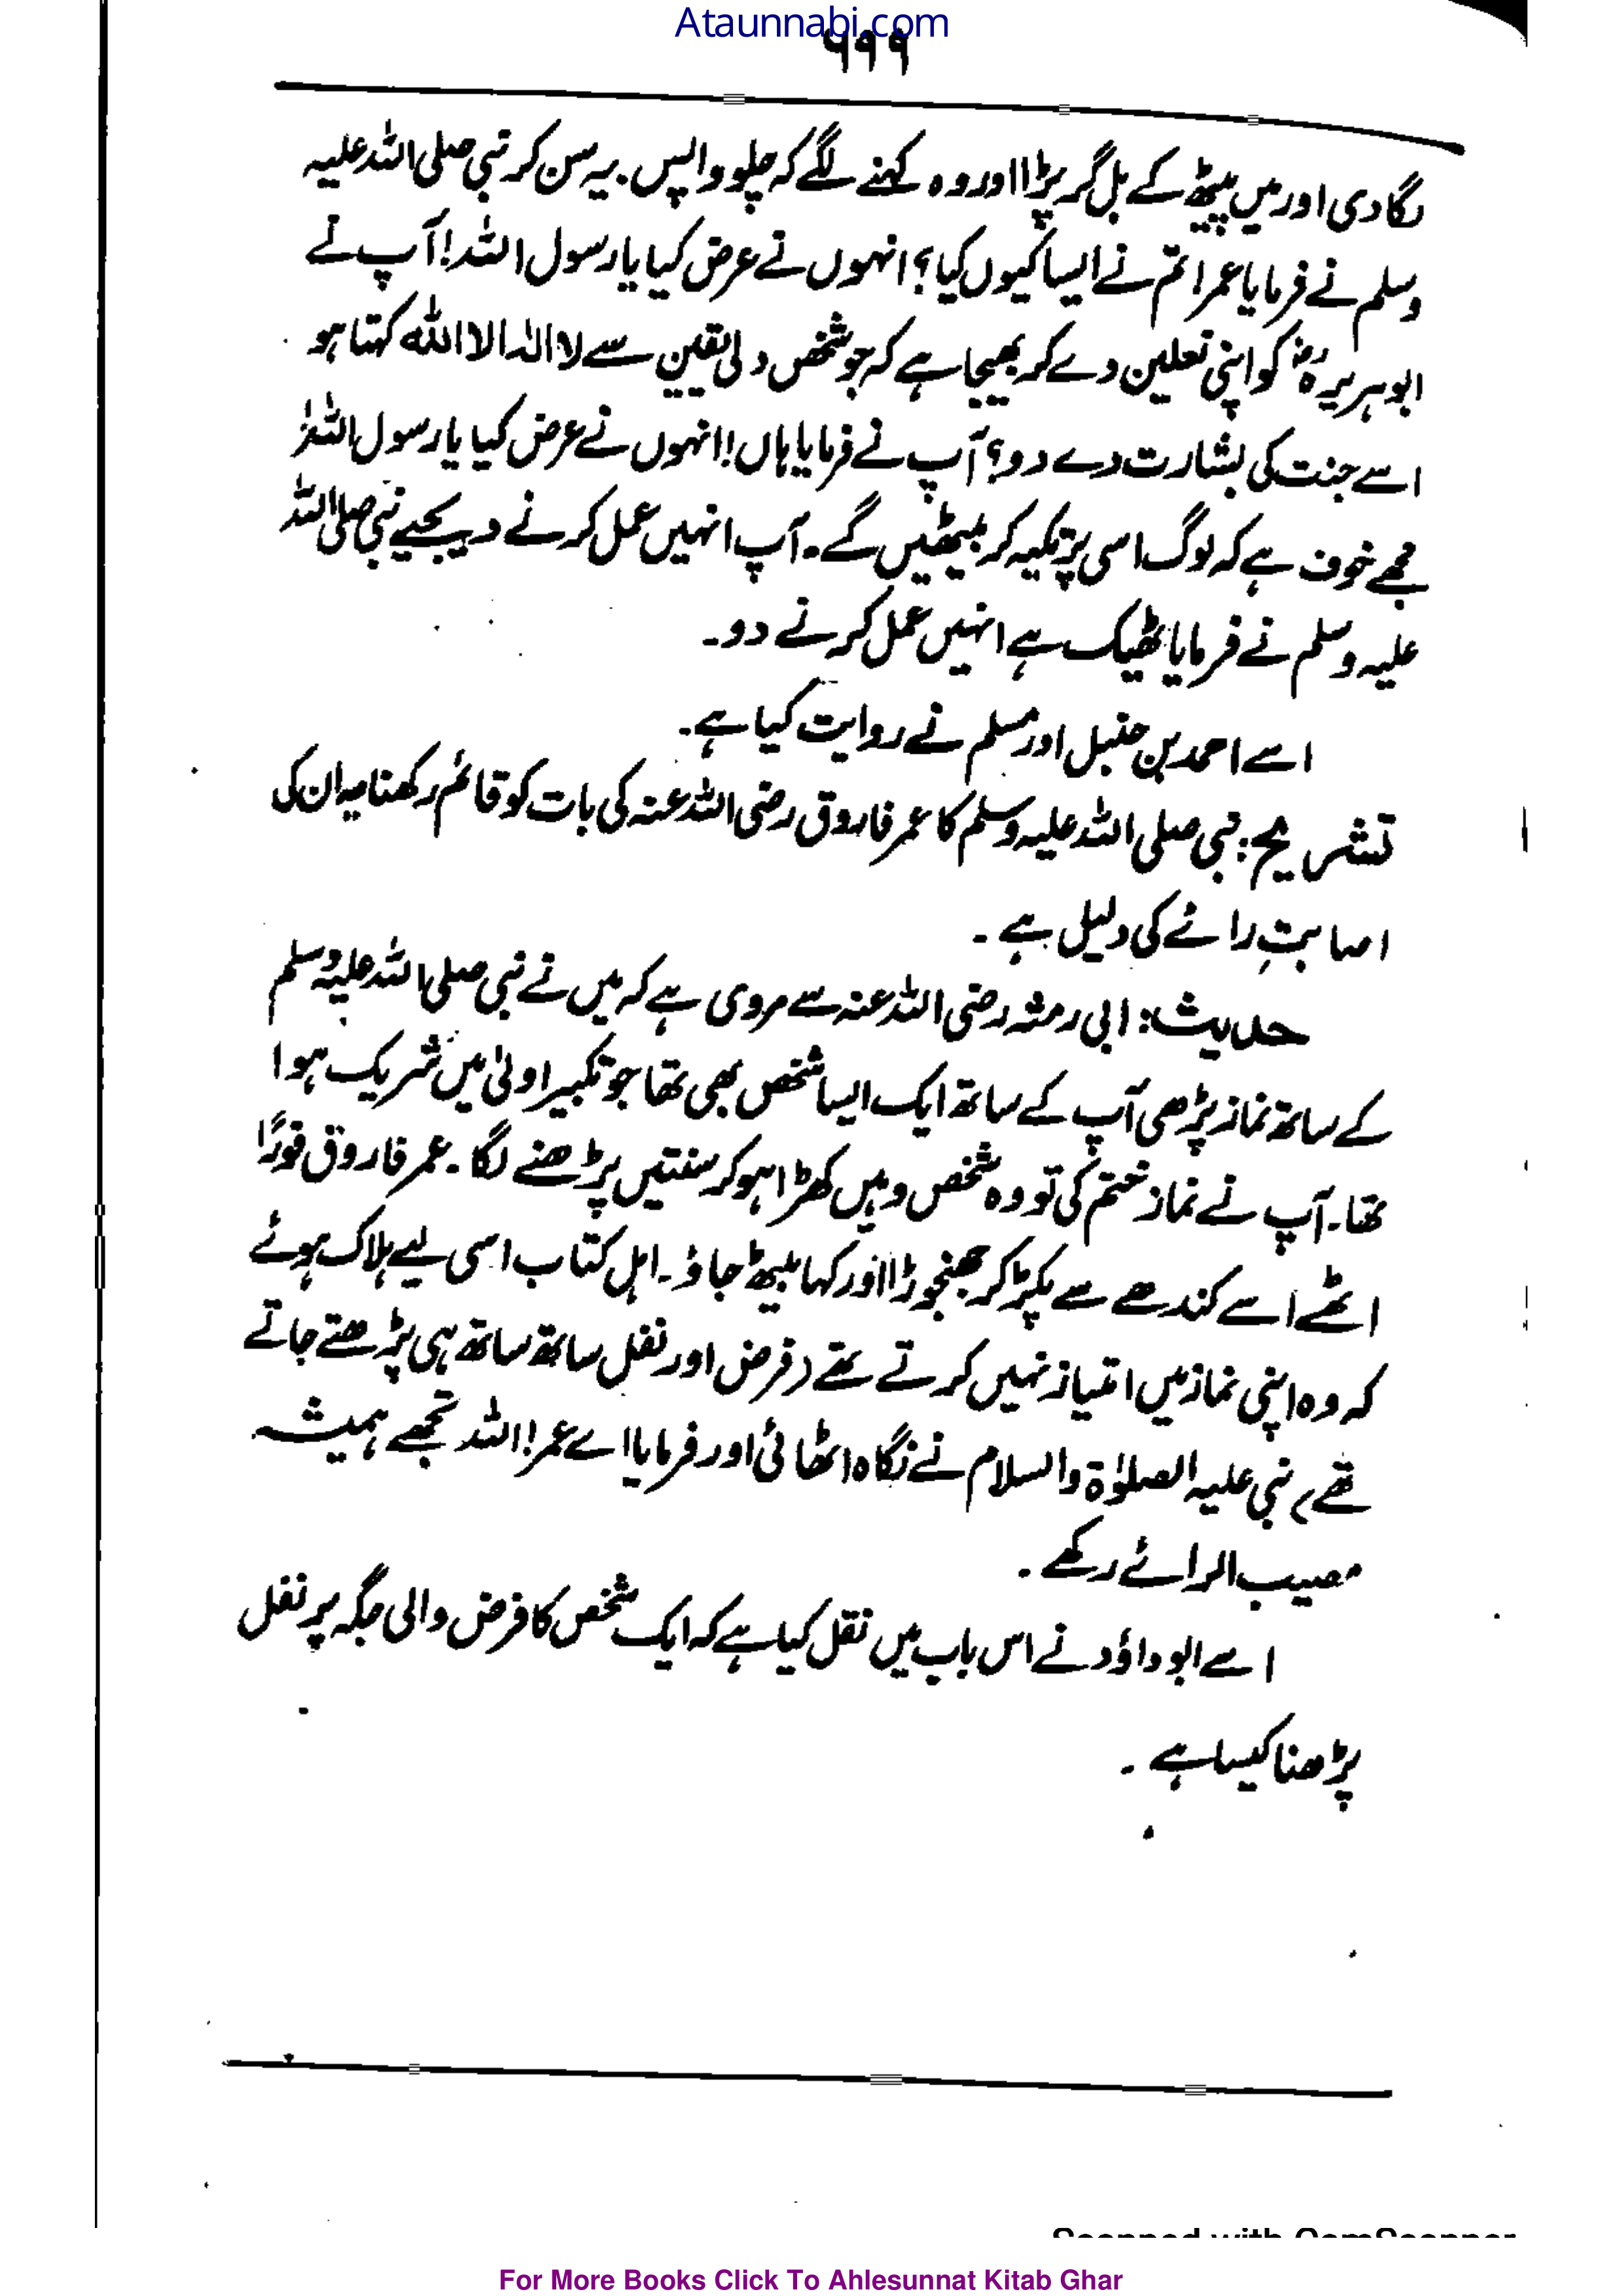 Ataunnabi.com
۵۹۹
لگا دی اور میں پیٹھ کے بل گر پڑا اور وہ کہنے لگے کہ چلو واپس . یہ سن کر نبی صلی اللہ علیہ
وسلم نے فرمایا عمر! تم نے ایسا کیوں کیا؟ انہوں نے عرض کیا یا رسول اللہ! آپ نے
ابو ہریرہؓ کو اپنی نعلین دے کر بھیجا ہے کہ جو شخص دلی یقین سے لا الہ الا اللہ کہتا ہو
اسے جنت کی بشارت دے دو؟ آپ نے فرمایا ہاں! انہوں نے عرض کیا یا رسول اللہ!
مجھے خوف ہے کہ لوگ اسی پر تکیہ کر بیٹھیں گے۔ آپ انہیں عمل کرنے دیجیے نبی صلی اللہ
علیہ وسلم نے فرمایا ٹھیک ہے انہیں عمل کرنے دو۔
اسے احمد بن حنبل اور مسلم نے روایت کیا ہے۔
تشریح: نبی صلی اللہ علیہ وسلم کا عمر فاروق رضی اللہ عنہ کی بات کو قائم رکھنا یہ ان کی
اصابتِ رائے کی دلیل ہے ۔
حدیث: ابی رمثہ رضی اللہ عنہ سے مروی ہے کہ میں نے نبی صلی اللہ علیہ وسلم
کے ساتھ نماز پڑھی آپ کے ساتھ ایک ایسا شخص بھی تھا جو تکبیر اولیٰ میں شریک ہوا
تھا۔ آپ نے نماز ختم کی تو وہ شخص وہیں کھڑا ہو کر سنتیں پڑھنے لگا ۔ عمر فاروق فوراً
اٹھے اسے کندھے سے پکڑ کر جھنجوڑا اور کہا بیٹھ جاؤ۔ اہل کتاب اسی لیے ہلاک ہوئے
کہ وہ اپنی نماز میں امتیاز نہیں کرتے تھے (فرض اور نفل ساتھ ساتھ ہی پڑھتے جاتے
تھے) نبی علیہ الصلوٰۃ والسلام نے نگاہ اٹھائی اور فرمایا اے عمر! اللہ تجھے ہمیشہ
مصیب الرائے رکھے ۔
اسے ابو داؤد نے اس باب میں نقل کیا ہے کہ ایک شخص کا فرض والی جگہ پر نفل
پڑھنا کیسا ہے ۔
Scanned with CamScanner
For More Books Click To Ahlesunnat Kitab Ghar